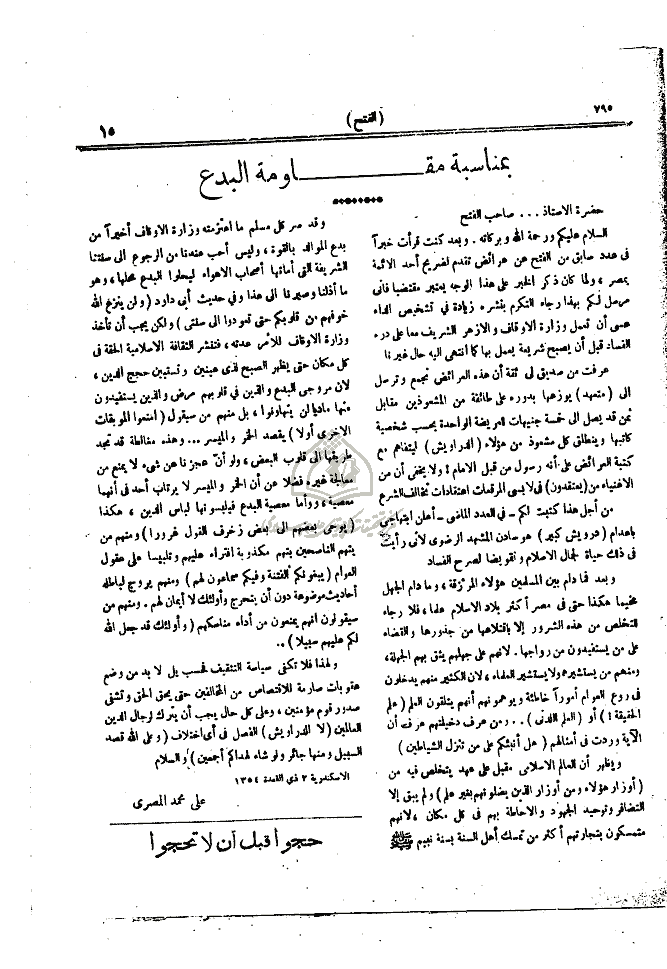 ٧٩٥
(الفتح)
١٥
بمناسبة مقـاومة البدع
حضرة الاستاذ... صاحب الفتح
السلام عليكم ورحمة الله وبركاته. وبعد كنت قرأت خبرآ
فى عدد سابق من الفتح عن عرائض تقدم لضريح أحد الائمة
بمصر، ولما كان ذكر الخبر على هذا الوجه يعتبر مقتضبا فانى
مرسل لكم بهذا رجاء التكرم بنشره زيادة فى تشخيص الداء
عسى أن تعمل وزارة الاوقاف والازهر الشريف معا على درء
الفساد قبل أن يصبح شريعة يعمل بها كما انتهى اليه حال غيرنا
عرفت من صديق لى ثقة أن هذه العرائض تجمع وترسل
الى (متعهد) يوزعها بدوره على طائفة من المشعوذين مقابل
ثمن قد يصل الى خمسة جنيهات العريضة الواحدة بحسب شخصية
كاتبها وينطلق كل مشعوذ من هؤلاء (الدراويش) ليتفاهم مع
كتبة العرائض على أنه رسول من قبل الامام! ولا يخفى أن من
الاغنياء من (يعتقدون) فى لابسى المرقعات اعتقادات تخالف الشرع
من أجل هذا كتبت لكم - فى العدد الماضى - أعلن ابتهاجى
باعدام (درويش كبير) هو سادن المشهد الرضوى لانى رأيت
فى ذلك حياة لجمال الاسلام وتقويضا لصرح الفساد
وبعد فما دام بين المسلمين هؤلاء المرتزقة، وما دام الجهل
مخيما هكذا حتى فى مصر أكثر بلاد الاسلام علما، فلا رجاء
للتخلص من هذه الشرور إلا باقتلاعها من جذورها والقضاء
على من يستفيدون من رواجها. لانهم على جهلهم يثق بهم الجهلة،
ومنهم من يستشيره ولا يستشير العلماء، لان الكثير منهم يدخلون
فى روع العوام أمورآ خاطئة ويوهمونهم أنهم يتلقون العلم (علم
الحقيقة!) أو (العلم اللدنى)... ومن عرف دخيلتهم عرف أن
الآية وردت فى أمثالهم (هل أنبئكم على من تنزل الشياطين)
ويظهر أن العالم الاسلامى مقبل على عهد يتخلص فيه من
(أوزار هؤلاء ومن أوزار الذين يضلونهم بغير علم) ولم يبق إلا
التضافر وتوحيد الجهود والاحاطة بهم فى كل مكان، لانهم
متمسكون بتجارتهم أكثر من تمسك أهل السنة بسنة نبيهم ﷺ
وقد سر كل مسلم ما اعتزمته وزارة الاوقاف أخيرآ من
بدع الموالد بالقوة، وليس أحب عندنا من الرجوع الى سنتنا
الشريفة التى أماتها أصحاب الاهواء ليحلوا البدع محلها، وهو
ما أذلنا وصيرنا الى هذا وفى حديث أبى داود (ولن ينزع الله
خوفهم من قلوبكم حتى تعودوا الى سنتى) ولكن يجب أن تأخذ
وزارة الاوقاف للأمر عدته، فتنشر الثقافة الاسلامية الحقة فى
كل مكان حتى يظهر الصبح لذى عينين وتستبين حجج الدين،
لان مروجى البدع والذين فى قلوبهم مرض والذين يستفيدون
منها ماديا لن يتهاونوا، بل منهم من سيقول (امنعوا الموبقات
الاخرى أولا) يقصد الخمر والميسر... وهذه مغالطة قد تجد
طريقها الى قلوب البعض، ولو أن عجزنا عن شىء لا يمنع من
معالجة غيره فضلا عن أن الخمر والميسر لا يرتاب أحد فى أنهما
معصية، وأما معصية البدع فيلبسونها لباس الدين، هكذا
(يوحى بعضهم الى بعض زخرف القول غرورا) ومنهم من
يتهم الناصحين بتهم مكذوبة افتراء عليهم وتلبيسا على عقول
العوام (يبغونكم الفتنة وفيكم سماعون لهم) ومنهم يروج لباطله
أحاديث موضوعة دون أن يتحرج وأولئك لا أيمان لهم. ومنهم من
سيقولون انهم يمنعون من أداء مناسكهم (وأولئك قد جعل الله
لكم عليهم سبيلا)..
ولهذا فلا تكفى سياسة التثقيف فحسب بل لا بد من وضع
عقوبات صارمة للاقتصاص من المخالفين حتى يحق الحق وتشفى
صدور قوم مؤمنين، وعلى كل حال يجب أن يترك لرجال الدين
العالمين (لا الدراويش) الفصل فى أى اختلاف (وعلى الله قصد
السبيل ومنها جائر ولو شاء لهداكم أجمعين) والسلام
الاسكندرية ٢ ذى القعدة ١٣٥٤
على محمد المصرى
حجوا قبل أن لا تحجوا